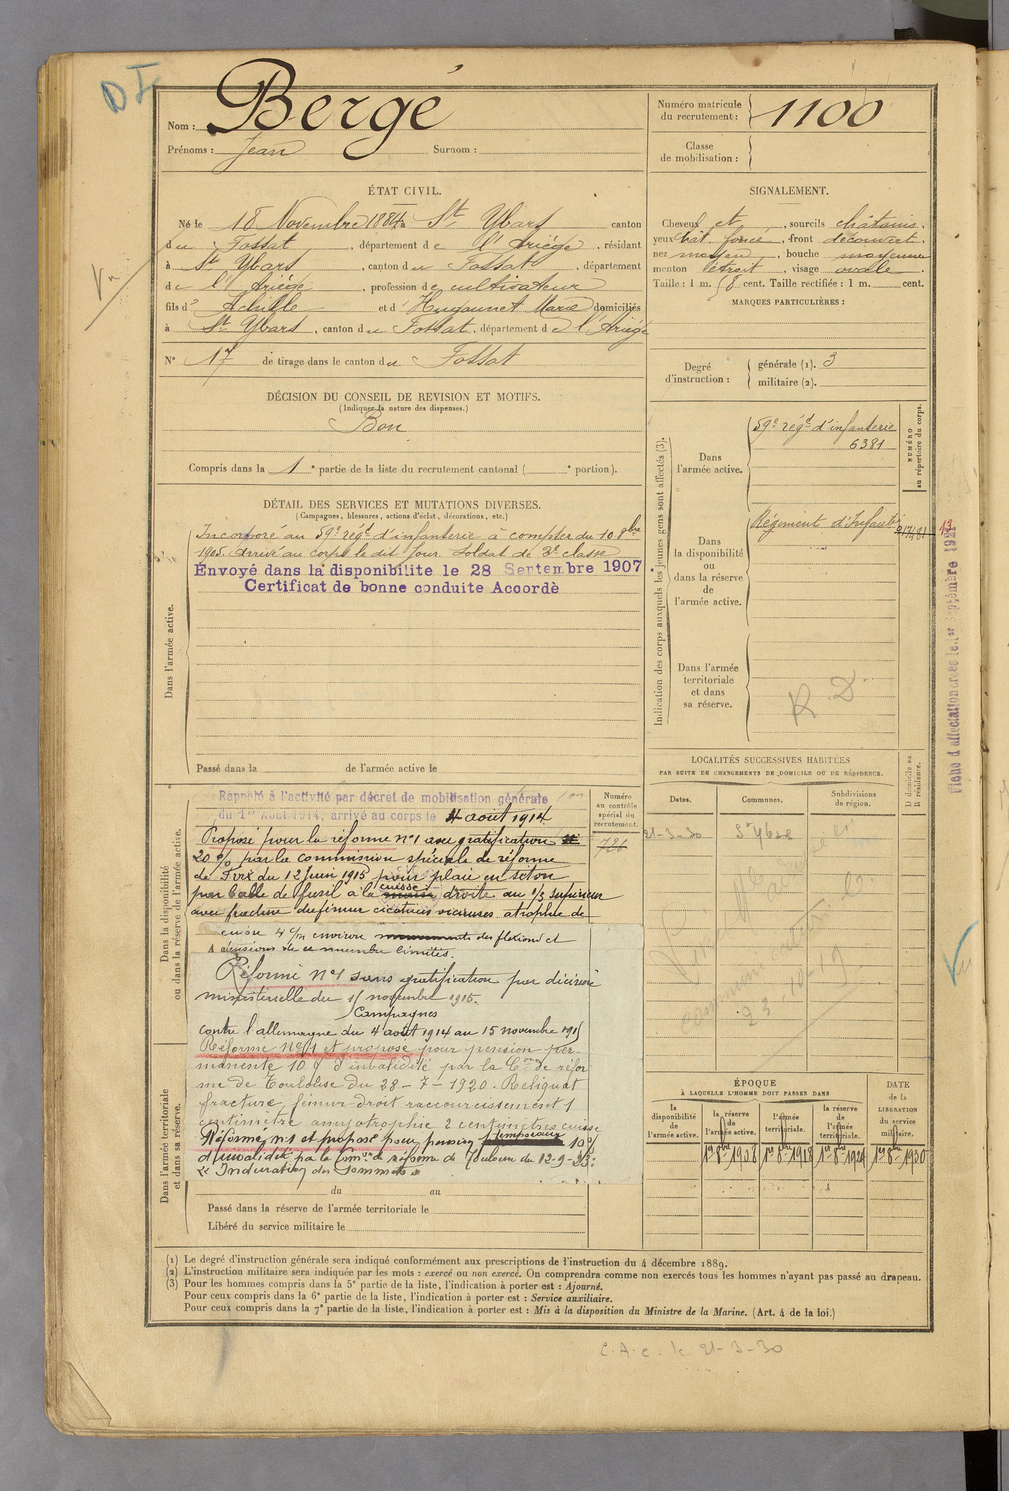 D I
Nom : Bergé
Prénoms : Jean Surnom :
Numéro matricule
du recrutement : 1100
Classe
de mobilisation :
ÉTAT CIVIL.
Né le 18 Novembre 1884 à St Ybars canton
du Fossat, département de l'Ariège, résidant
à St Ybars, canton du Fossat, département
de l'Ariège, profession de cultivateur
fils d' Achille et d' Hugounet Marie domiciliés
à St Ybars, canton du Fossat, département de l'Ariège
N° 17 de tirage dans le canton du Fossat
SIGNALEMENT.
Cheveux et, sourcils châtains,
yeux chât. foncé, front découvert,
nez moyen, bouche moyenne
menton étroit, visage ovale.
Taille : 1 m. 58 cent. Taille rectifiée : 1 m. cent.
MARQUES PARTICULIÈRES :
Degré
d'instruction :
générale (1). 3
militaire (2).
DÉCISION DU CONSEIL DE REVISION ET MOTIFS.
(Indiquer la nature des dispenses.)
Bon
Compris dans la 1e partie de la liste du recrutement cantonal ( e portion).
DÉTAIL DES SERVICES ET MUTATIONS DIVERSES.
(Campagnes, blessures, actions d'éclat, décorations, etc.)
Dans l'armée active.
Incorporé au 59e régt d'infanterie à compter du 10 8bre
1905. Arrivé au corps le dit jour. Soldat de 2e classe
Envoyé dans la disponibilite le 28 Septembre 1907
Certificat de bonne conduite Accordè
Passé dans la de l'armée active le
Indication des corps auxquels les jeunes gens sont affectés (3).
NUMÉRO
au répertoire du corps.
Dans
l'armée active.
59e régt d'infanterie
6381
Dans
la disponibilité
ou
dans la réserve
de
l'armée active.
Régiment d'Infanterie
Dans l'armée
territoriale
et dans
sa réserve.
R. D.
Fiche d'affectation créée le 1er septembre 192
LOCALITÉS SUCCESSIVES HABITÉES
PAR SUITE DE CHANGEMENTS DE DOMICILE OU DE RÉSIDENCE.
Dates. Communes. Subdivisions
de région.
D domicile ou
R résidence.
21-3-30 St Ybars
23-10-19
Dans la disponibilité
ou dans la réserve de l'armée active.
Numéro
au contrôle
spécial du
recrutement.
726
Rappelé à l'activité par décret de mobilisation générale
du 1er Août 1914, arrivé au corps le 4 août 1914
Proposé pour la réforme n°1 avec gratification
20 % par la commission spéciale de réforme
de Foix du 12 juin 1915 pour plaie en séton
par balle de fusil à la cuisse droite au 1/3 supérieur
avec fracture du fémur cicatrices vicieuses atrophie de
cuisse 4 c/m environ des flexions et
extensions de ce membre limités.
Réformé n°1 sans gratification par décision
ministérielle du 11 novembre 1915.
Campagnes
Contre l'allemagne du 4 août 1914 au 15 novembre 1915
Réformé n°1 et proposé pour pension per-
manente 10 % d'invalidité par la Con de réfor
me de Toulouse du 28-7-1920. Reliquat
fracture fémur droit raccourcissement 1
centimètre amyotrophie 2 centimètres cuisse
Réformé n°1 et proposé pour pension 10 %
d'invalidité par la Comon de réforme de Toulouse du 12-9-
« Induration des Sommets »
Dans l'armée territoriale
et dans sa réserve.
du au
Passé dans la réserve de l'armée territoriale le
Libéré du service militaire le
ÉPOQUE
À LAQUELLE L'HOMME DOIT PASSER DANS
la
disponibilité
de
l'armée active.
la réserve
de
l'armée active.
l'armée
territoriale.
la réserve
de
l'armée
territoriale.
DATE
de la
LIBÉRATION
du service
militaire.
1er 8bre 1908 1er 8bre 1918 1er 8bre 1924 1er 8bre 1930
(1) Le degré d'instruction générale sera indiqué conformément aux prescriptions de l'instruction du 4 décembre 1889.
(2) L'instruction militaire sera indiquée par les mots : exercé ou non exercé. On comprendra comme non exercés tous les hommes n'ayant pas passé au drapeau.
(3) Pour les hommes compris dans la 5e partie de la liste, l'indication à porter est : Ajourné.
Pour ceux compris dans la 6e partie de la liste, l'indication à porter est : Service auxiliaire.
Pour ceux compris dans la 7e partie de la liste, l'indication à porter est : Mis à la disposition du Ministre de la Marine. (Art. 4 de la loi.)
C.A.C. le 21-3-30